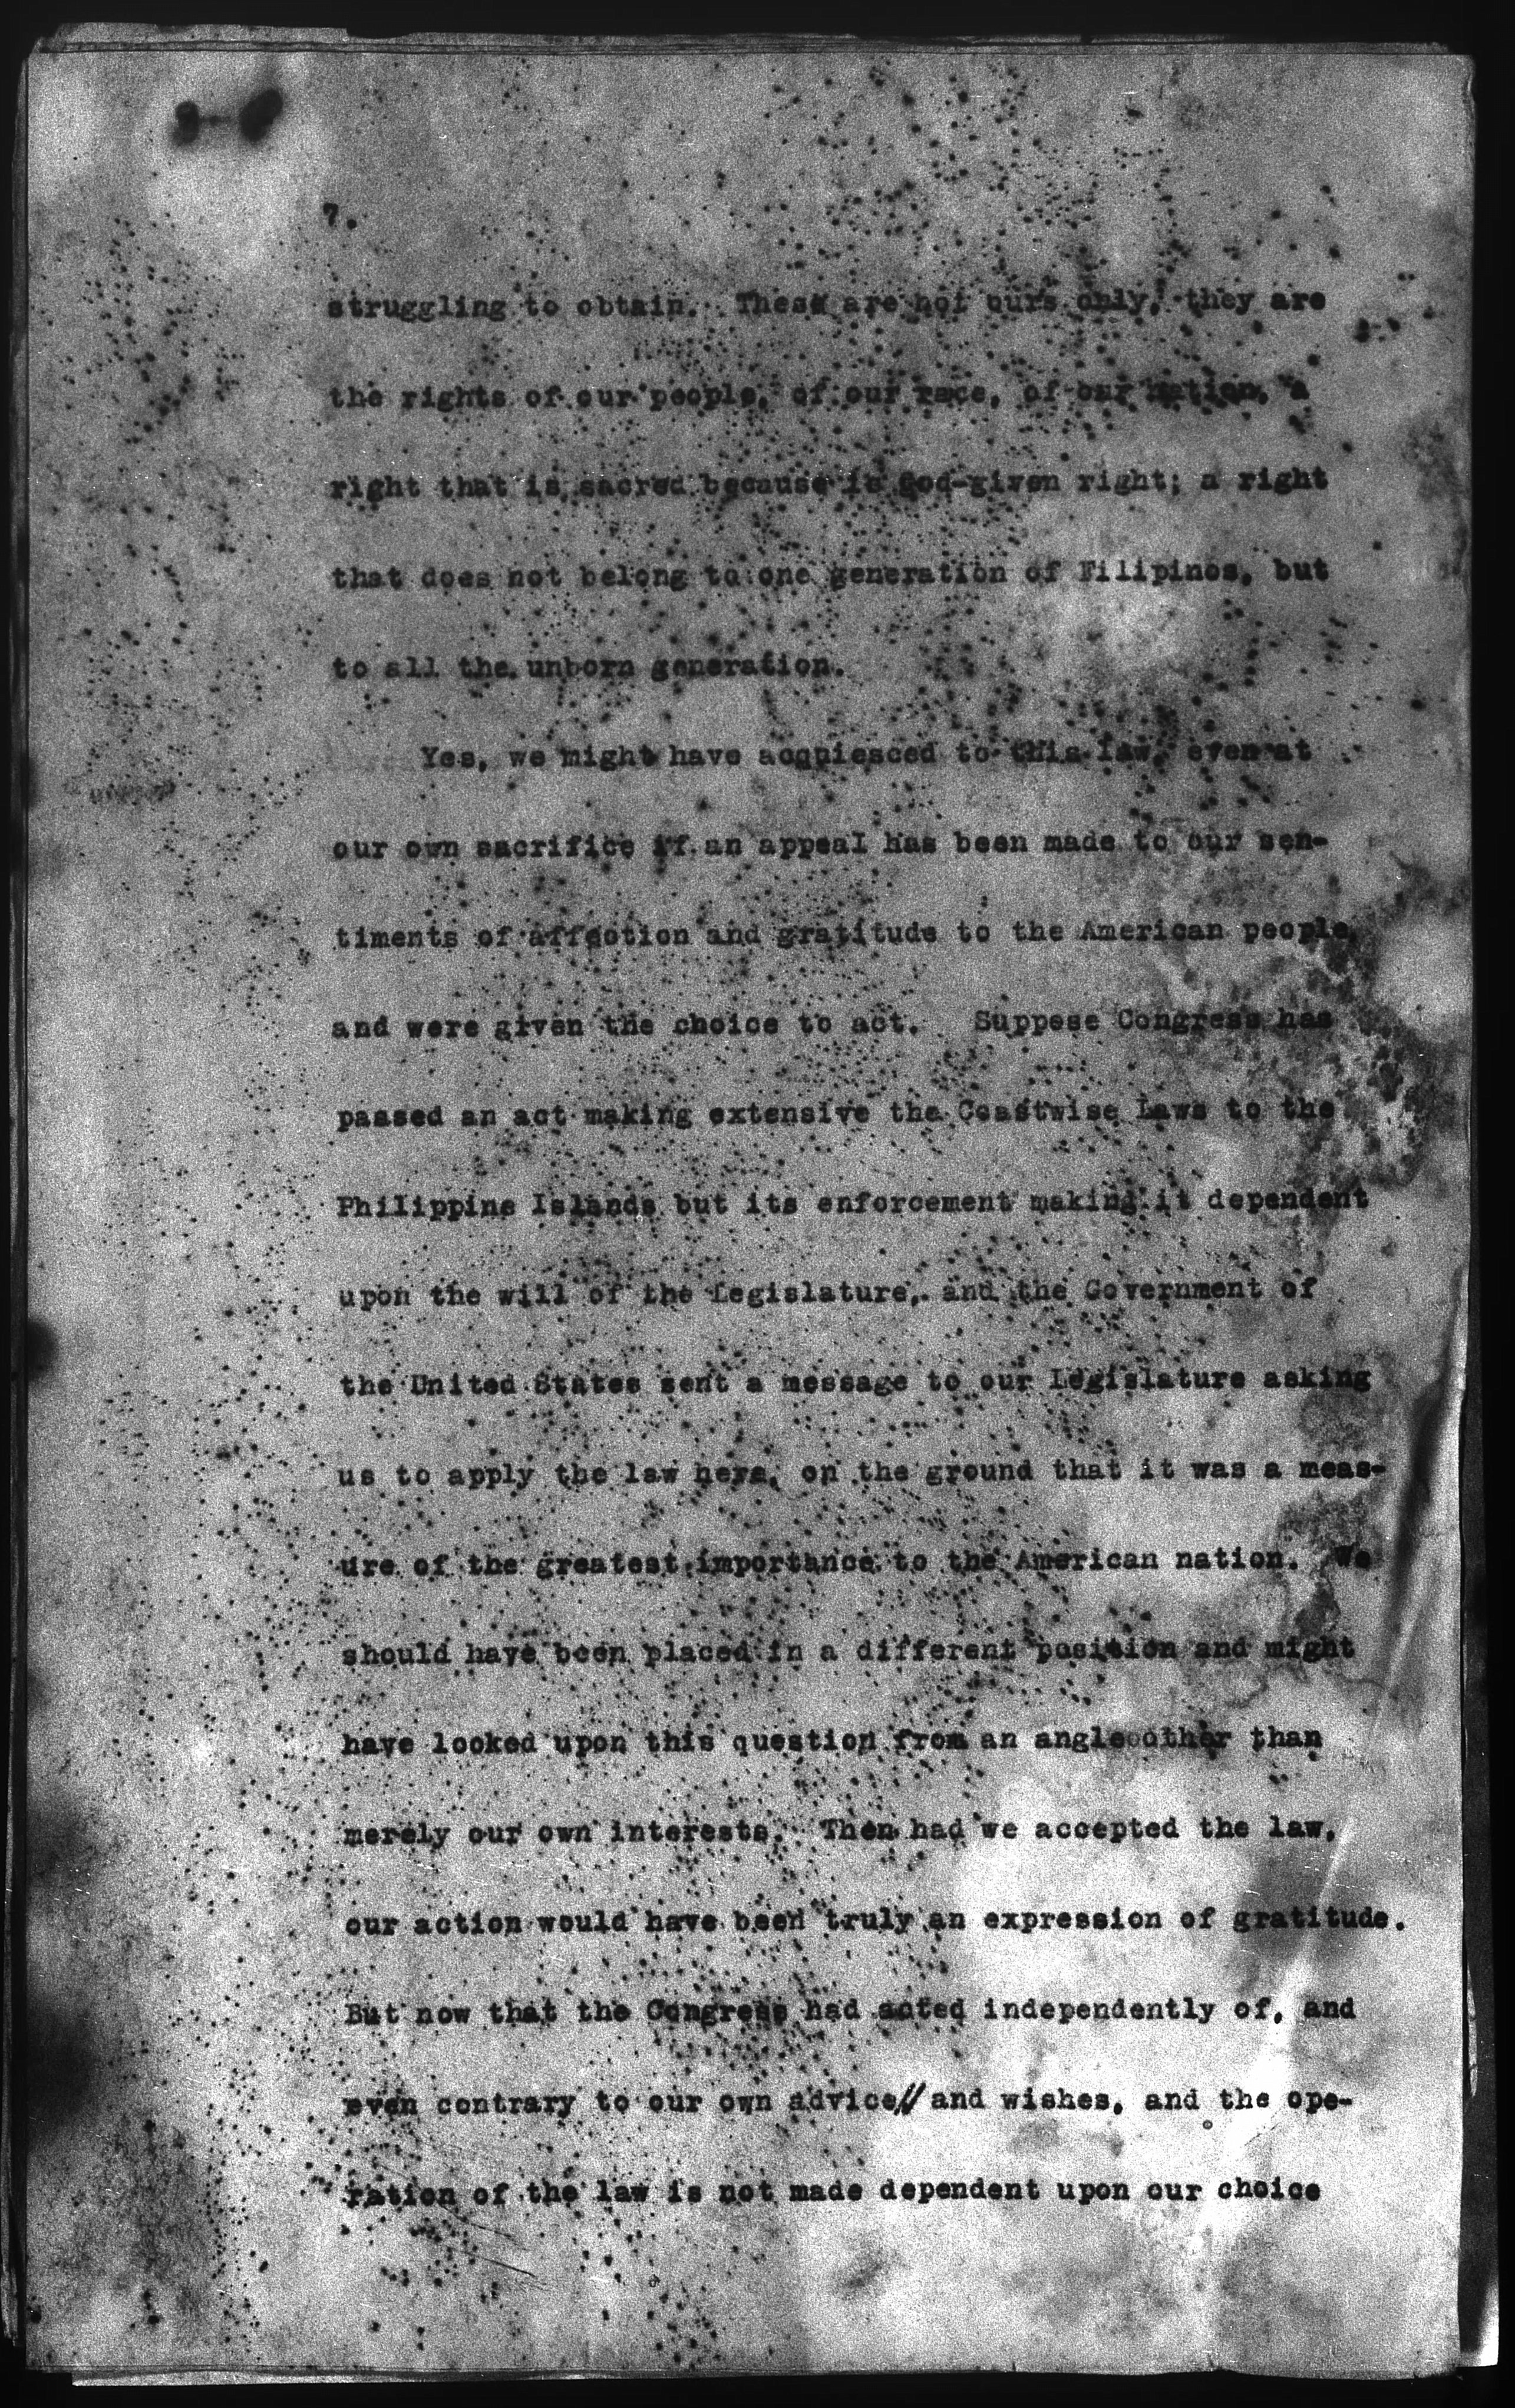 7.
struggling to obtain. These are not ours only, they are
the rights of our people, of our race, of our nation, a
right that is sacred because is God-given right; a right
that does not belong to one generation of Filipinos, but
to all the unborn generation.
Yes, we might have acquiesced to this law, even at
our own sacrifice if an appeal has been made to our sen-
timents of affection and gratitude to the American people,
and were given the choice to act. Suppose Congress has
passed an act making extensive the Coastwise Laws to the
Philippine Islands but its enforcement making it dependent
upon the will of the Legislature, and the Government of
the United States sent a message to our Legislature asking
us to apply the law here, on the ground that it was a meas-
ure of the greatest importance to the American nation. We
should have been placed in a different position and might
have looked upon this question from an angle other than
merely our own interests. Then had we accepted the law,
our action would have been truly an expression of gratitude.
But now that the Congress had acted independently of, and
even contrary to our own advice and wishes, and the ope-
ration of the law is not made dependent upon our choice